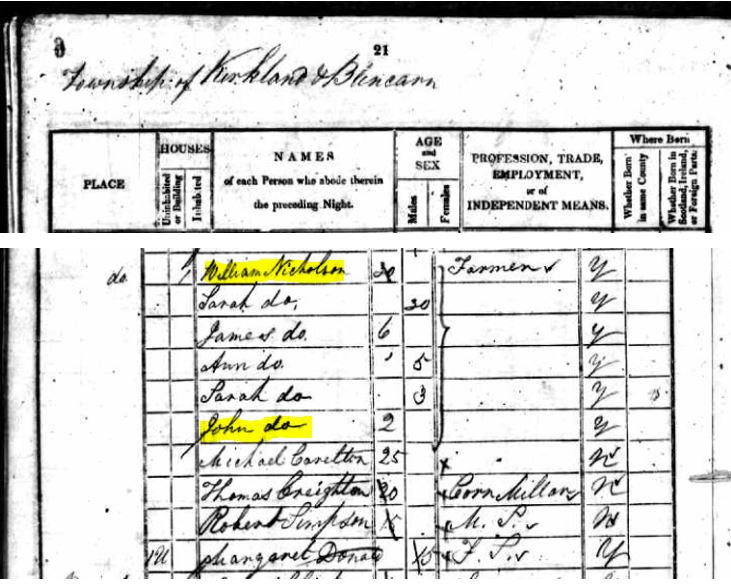 3
21
Township of Kirkland & Blencarn
PLACE
HOUSES
Uninhabited or Building
Inhabited
NAMES
of each Person who abode therein
the preceding Night.
AGE
and
SEX
Males
Females
PROFESSION, TRADE,
EMPLOYMENT,
or of
INDEPENDENT MEANS.
Where Born
Whether Born in same County
Whether Born in Scotland, Ireland, or Foreign Parts.
do 1 William Nicholson 30 Farmer Y
Sarah do. 30 Y
James do 6 Y
Ann do. 5 Y
Sarah do 3 Y
John do 2 Y
Michael Carelton 25 N
Thomas Creighton 20 Corn Miller N
Robert Simpson 15 M. S. N
1U Margaret Donald 15 F. S. Y